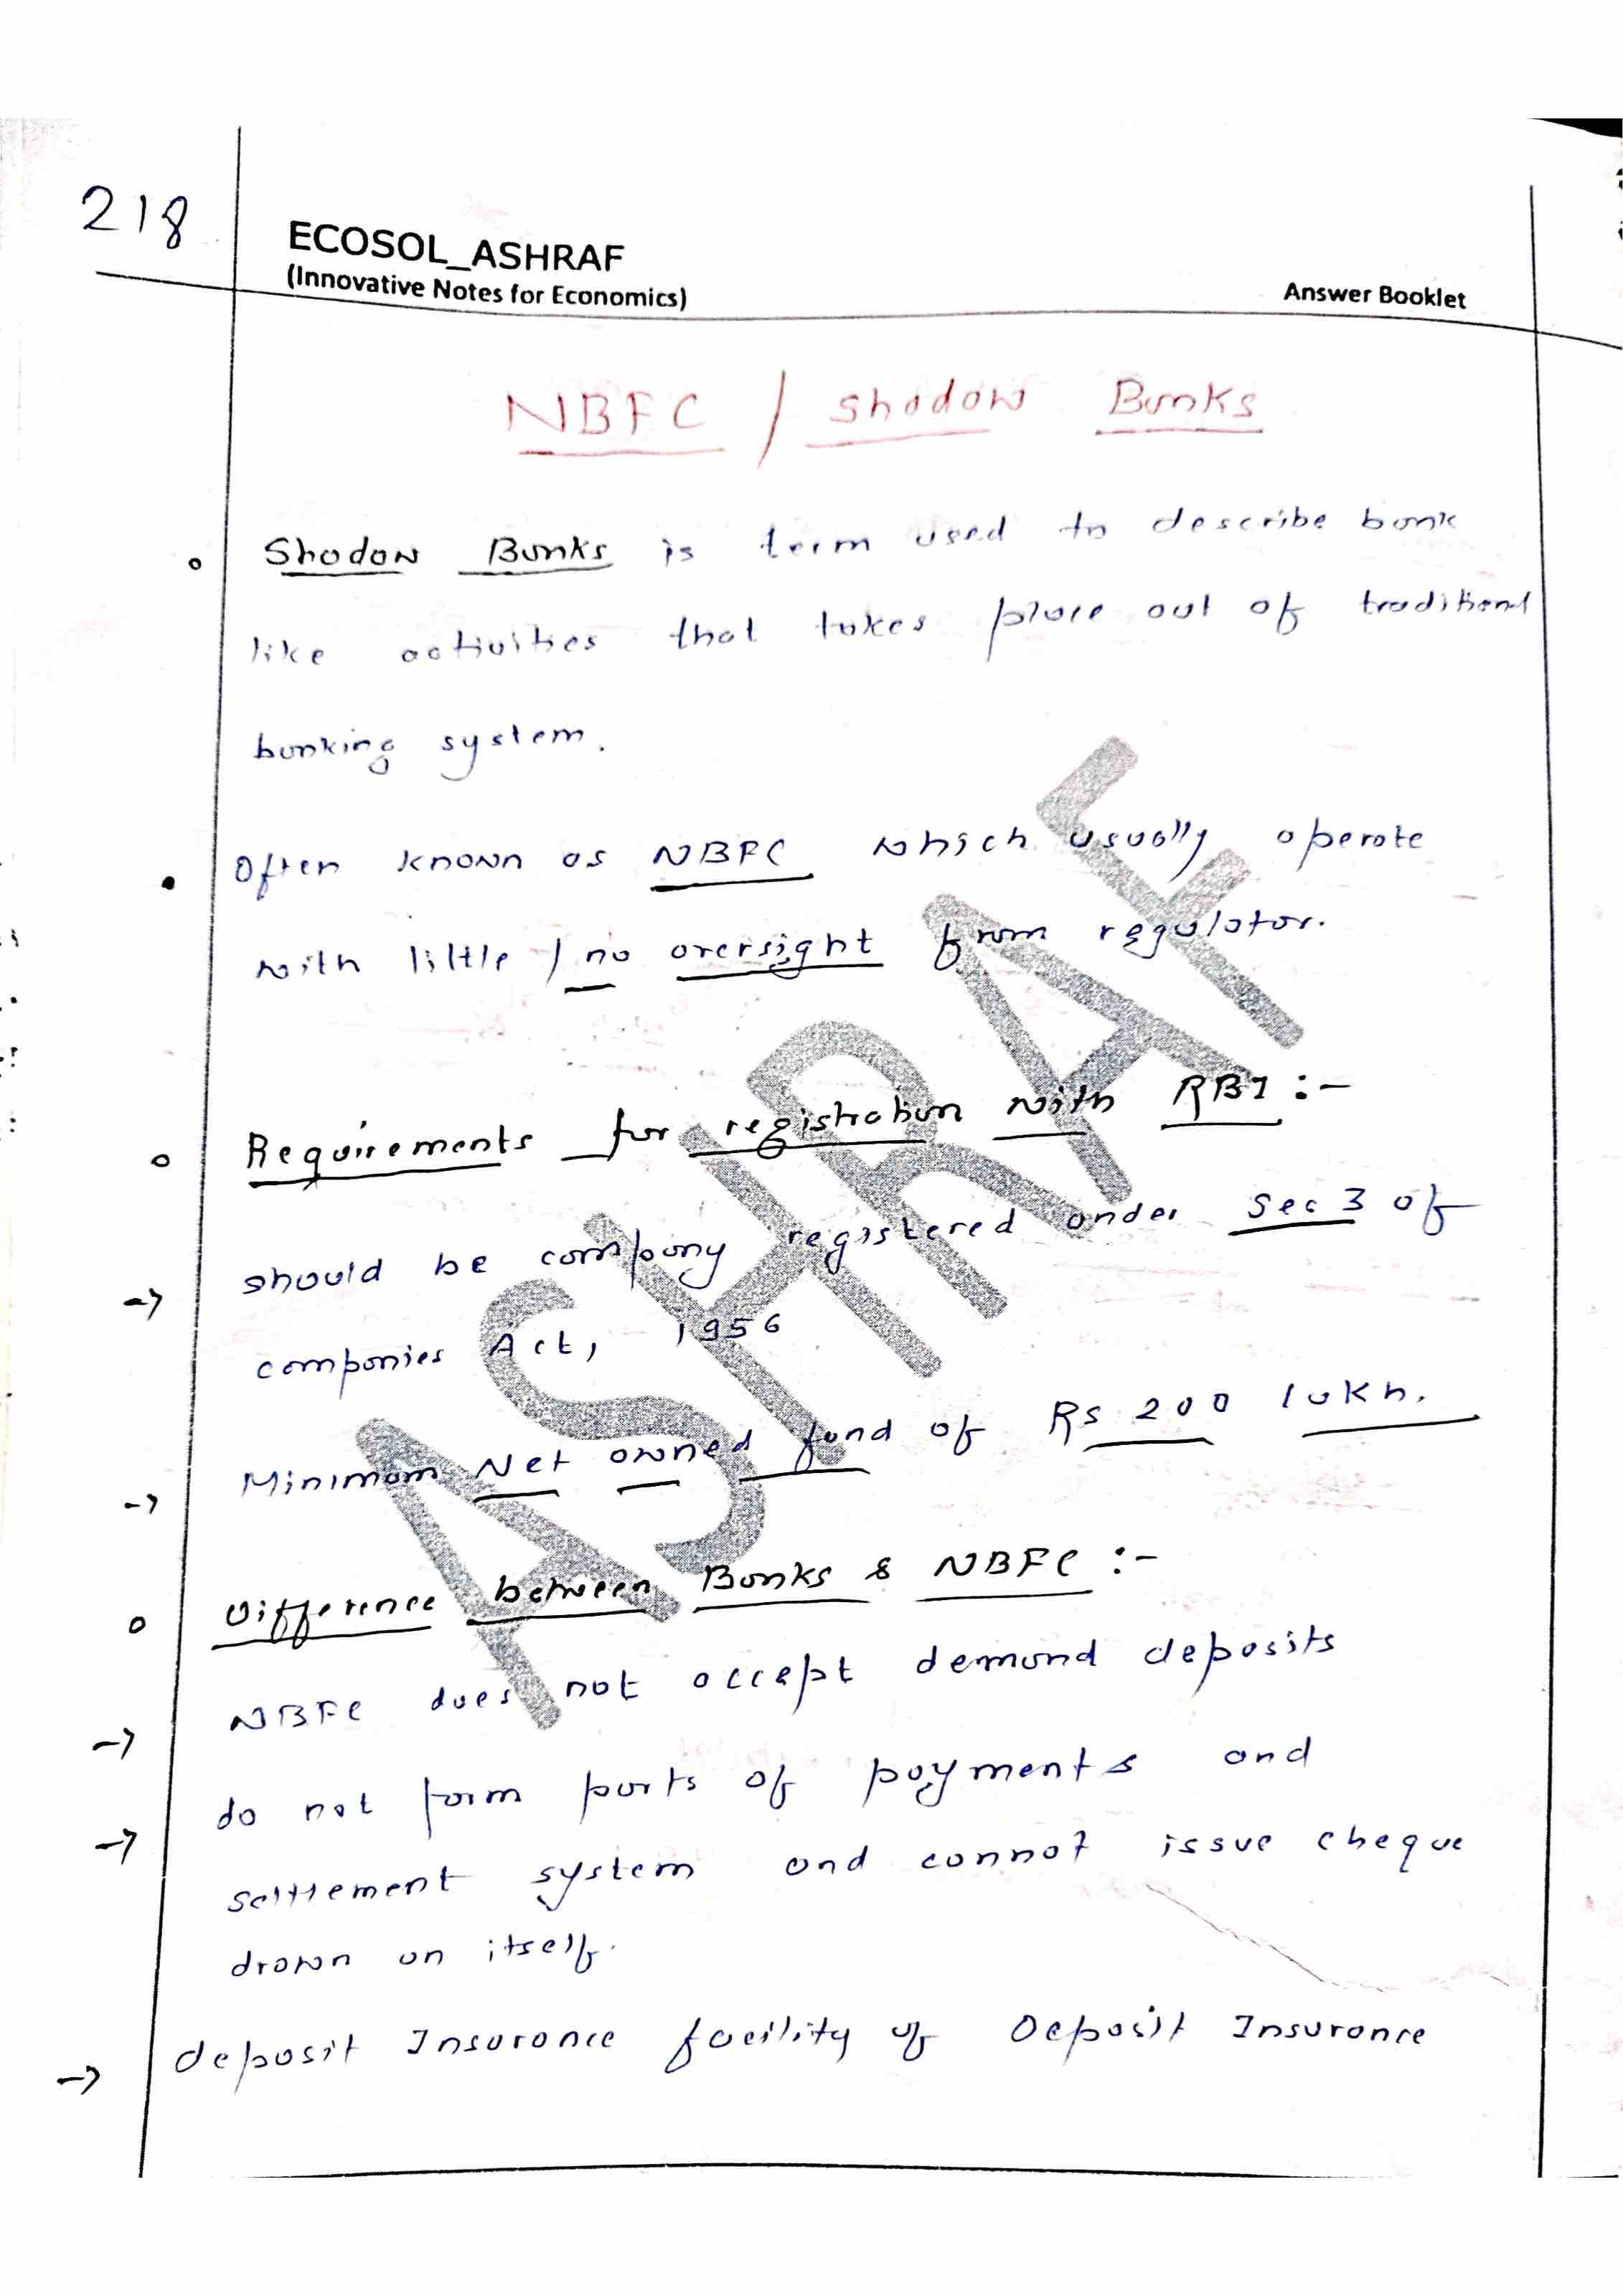 218
ECOSOL_ASHRAF
(Innovative Notes for Economics)
Answer Booklet
NBFC / Shadow Banks
Shadow Banks is term used to describe bank
like activities that takes place out of traditional
banking system.
Often known as NBFC which usually operate
with little / no oversight from regulator.
Requirements for registration with RBI :-
→ should be company registered under Sec 3 of
companies Act, 1956
→ Minimum Net owned fund of Rs 200 lakh.
Difference between Banks & NBFC :-
→ NBFC does not accept demand deposits
→ do not form parts of payments and
settlement system and cannot issue cheque
drawn on itself.
→ deposit Insurance facility of Deposit Insurance
ASHRAF